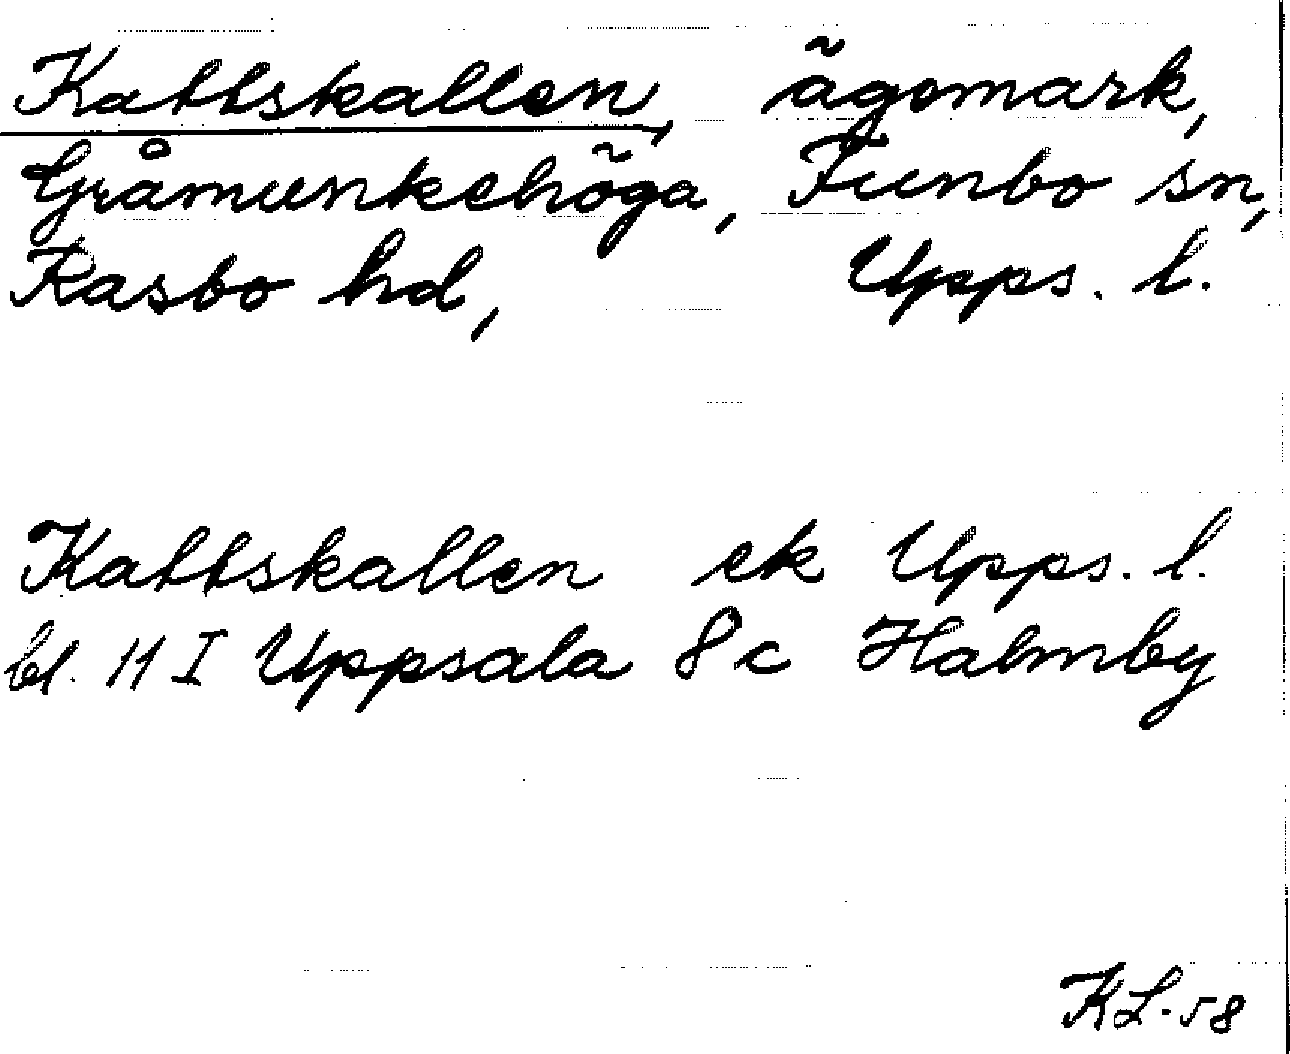 Kattskallen, ägomark,
Gråmunkehöga, Funbo sn,
Rasbo hd, Upps. l.
Kattskallen ek Upps. l.
bl. 11 I Uppsala 8 c Halmby
KL-58